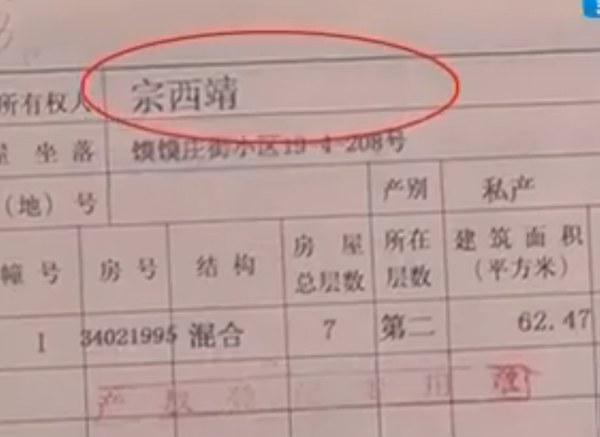 所有权人 宗西靖
坐落 馍馍庄街小区19-4-208号
(地)号 产别 私产
幢号 房号 结构 房屋总层数 所在层数 建筑面积(平方米)
1 34021995 混合 7 第二 62.47
产权